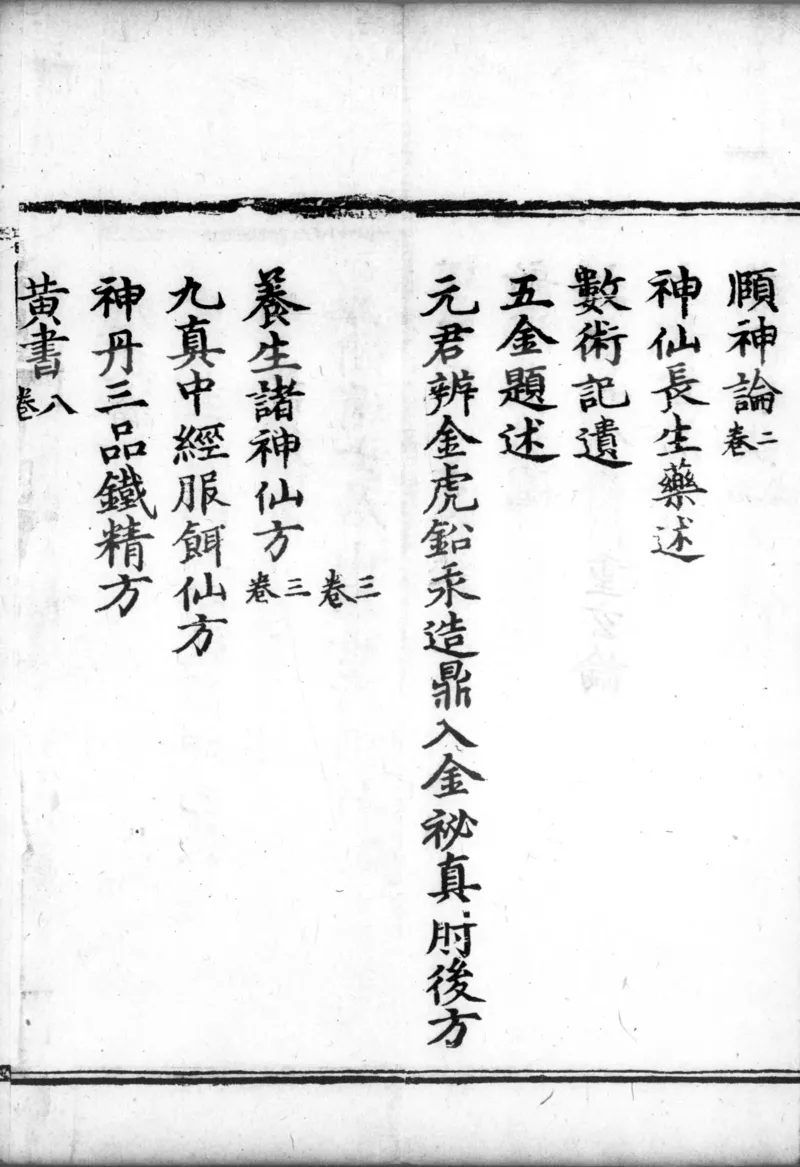 頤神論二卷
神仙長生藥述
數術記遺
五金題述
元君辨金虎鉛汞造鼎入金祕真肘後方
三卷
養生諸神仙方三卷
九真中經服餌仙方
神丹三品鐵精方
黃書八卷